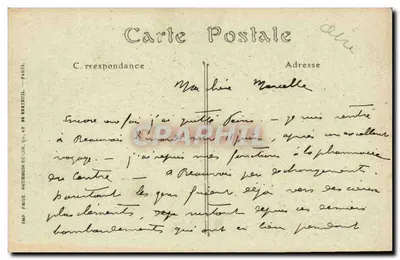 Carte Postale
Correspondance
Adresse
Ma chère Marcelle
Encore une fois j'ai quitté Paris – je suis rentré
à Beauvais après un excellent
voyage – j'ai repris mes fonctions à la pharmacie
du Centre – à Beauvais peu de changement.
Pourtant les gens fuient déjà vers des cieux
plus cléments, surtout depuis ces derniers
bombardements qui ont eu lieu pendant